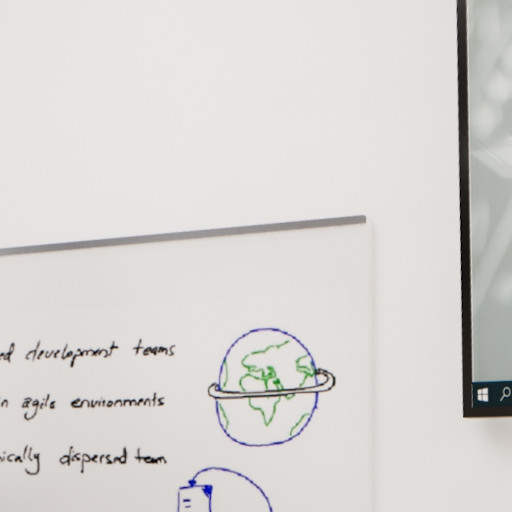 development teams
agile environments
dispersed team